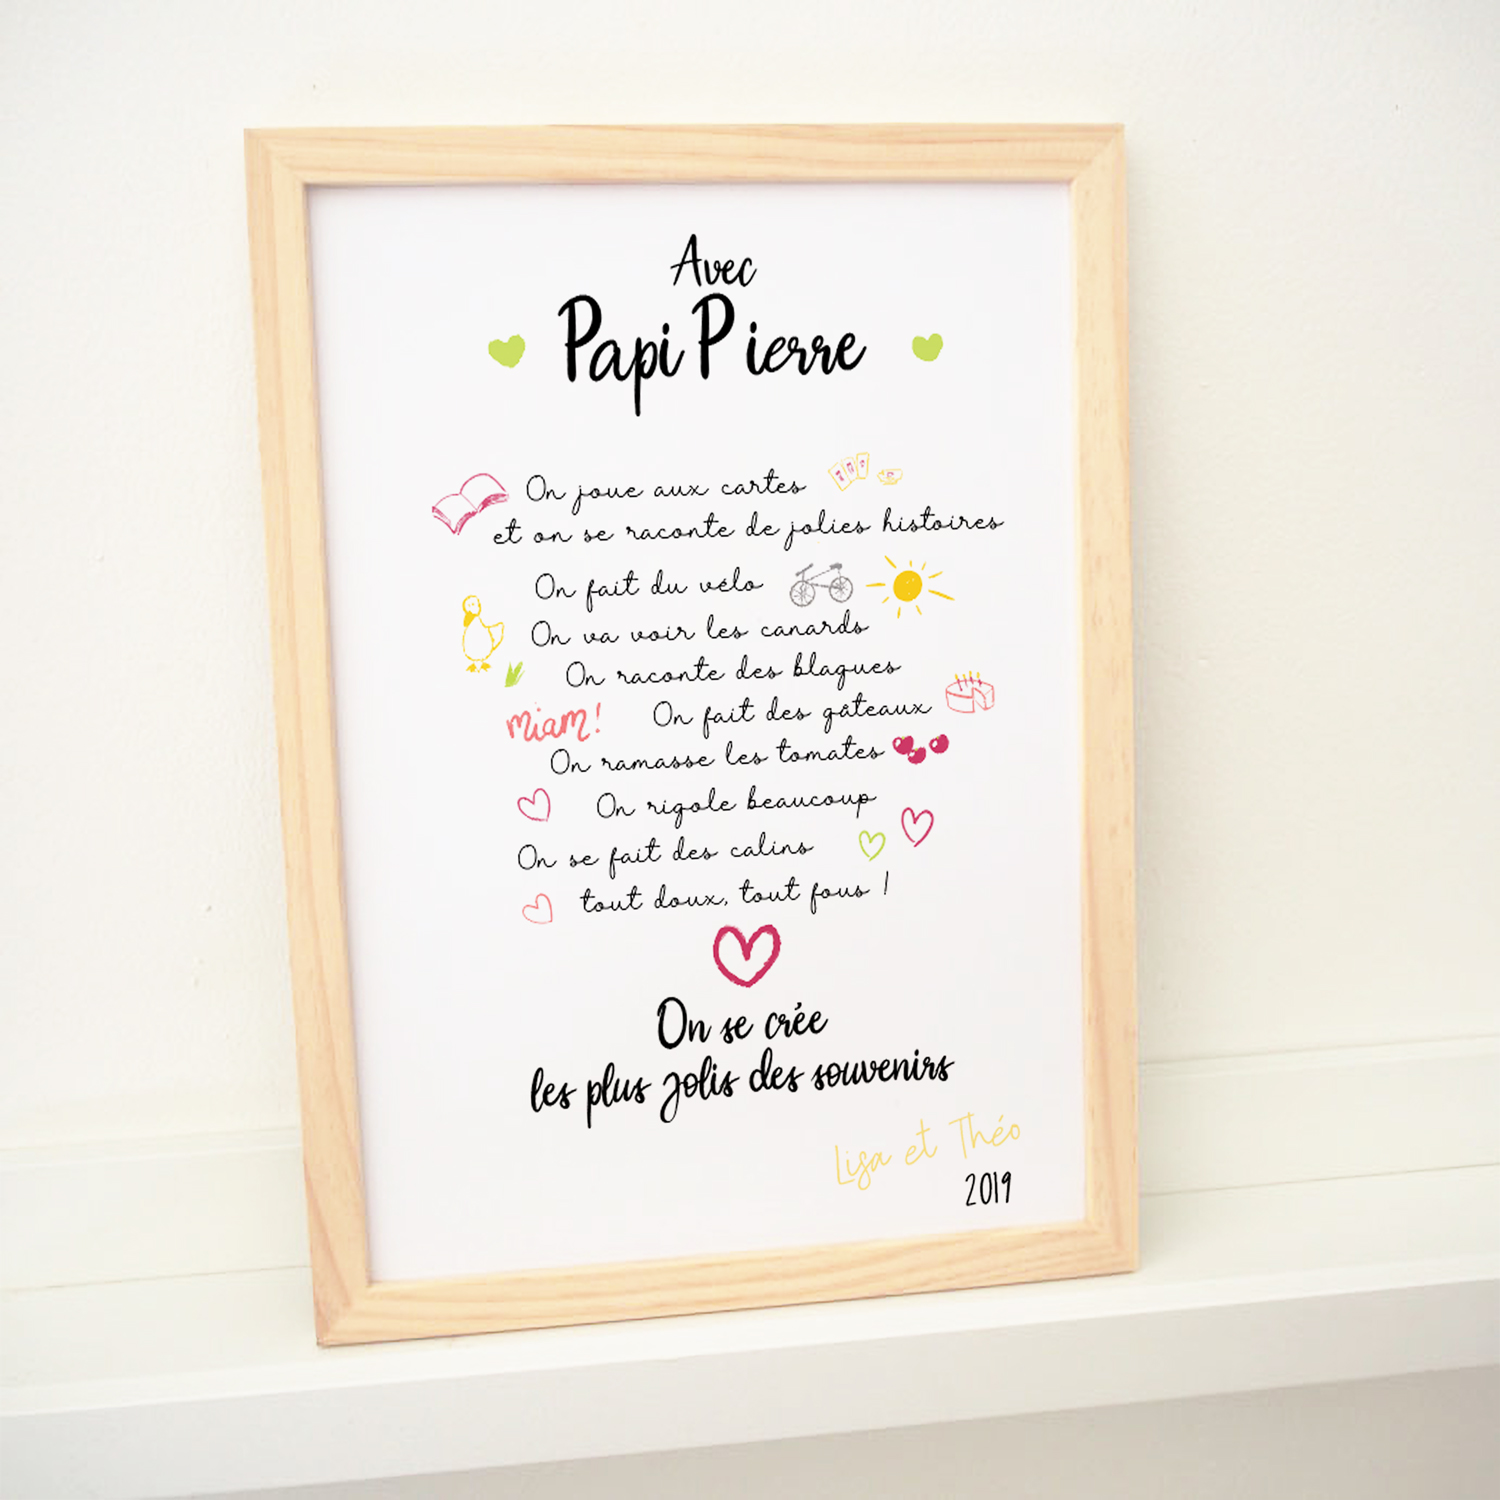 Avec
Papi Pierre
On joue aux cartes
et on se raconte de jolies histoires
On fait du vélo
On va voir les canards
On raconte des blagues
miam! On fait des gâteaux
On ramasse les tomates
On rigole beaucoup
On se fait des calins
tout doux, tout fous !
On se crée
les plus jolis des souvenirs
Lisa et Théo
2019